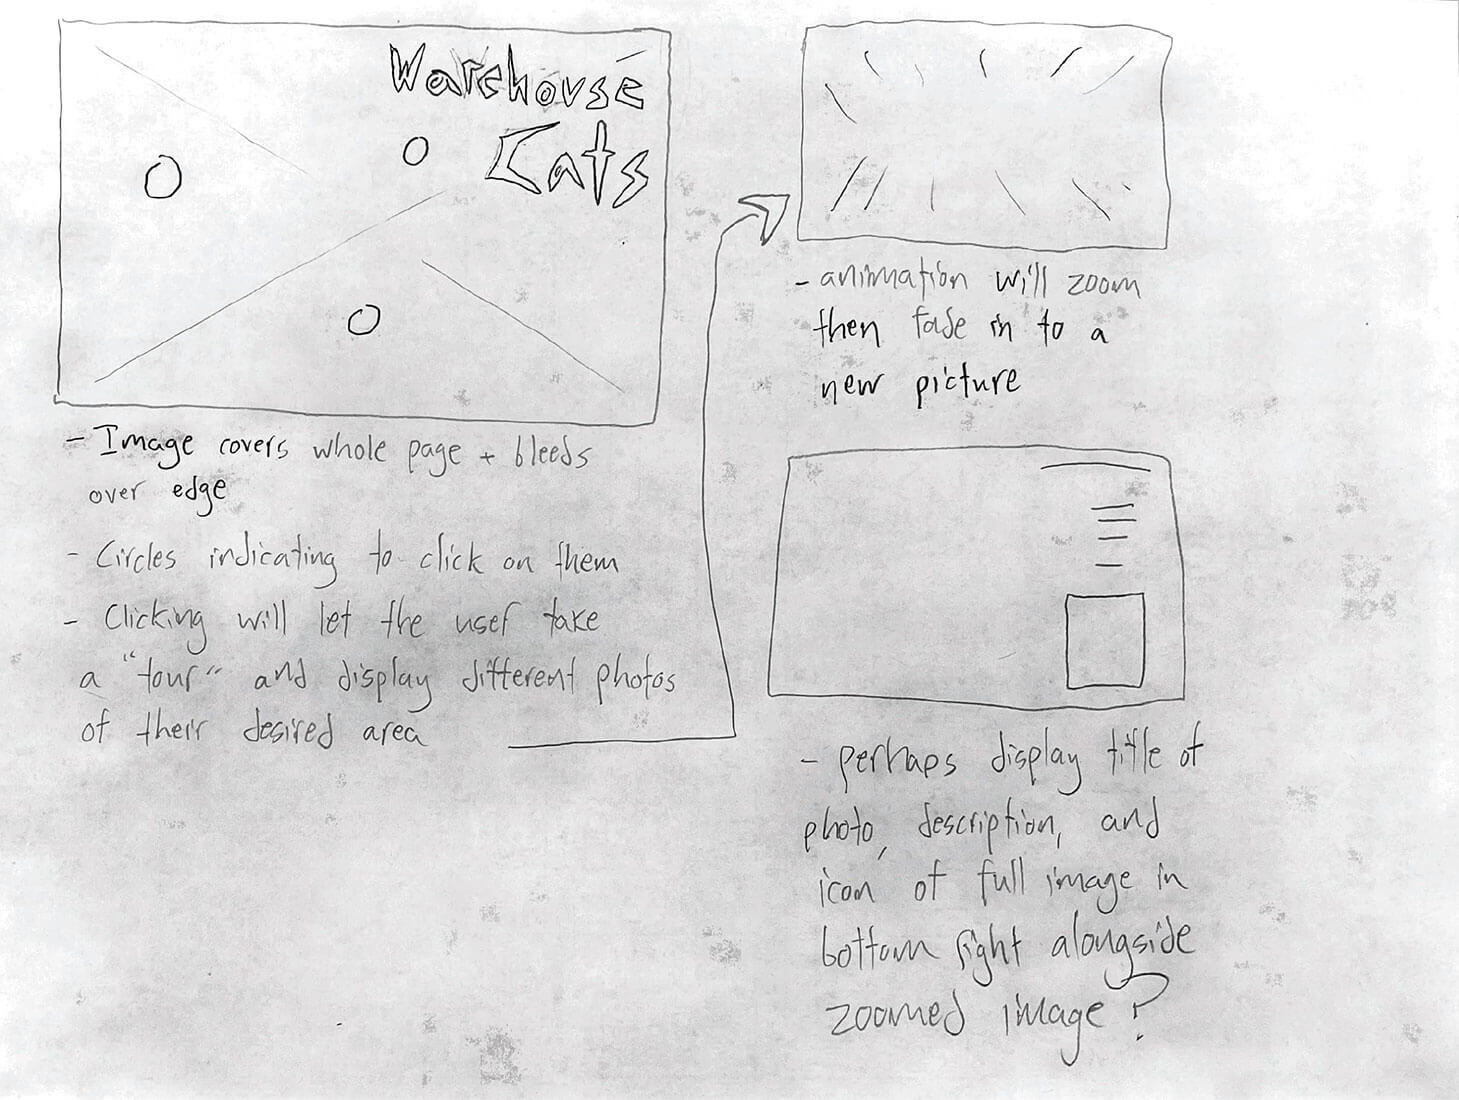 Warehouse
Cats
- Image covers whole page + bleeds
over edge
- Circles indicating to click on them
- Clicking will let the user take
a "tour" and display different photos
of their desired area
- animation will zoom
then fade in to a
new picture
- perhaps display title of
photo, description, and
icon of full image in
bottom right alongside
zoomed image?